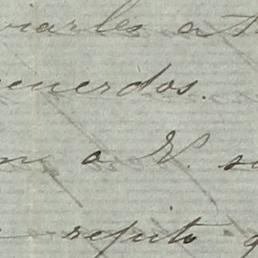 viarles a
cuerdos.
a V. s
repito q